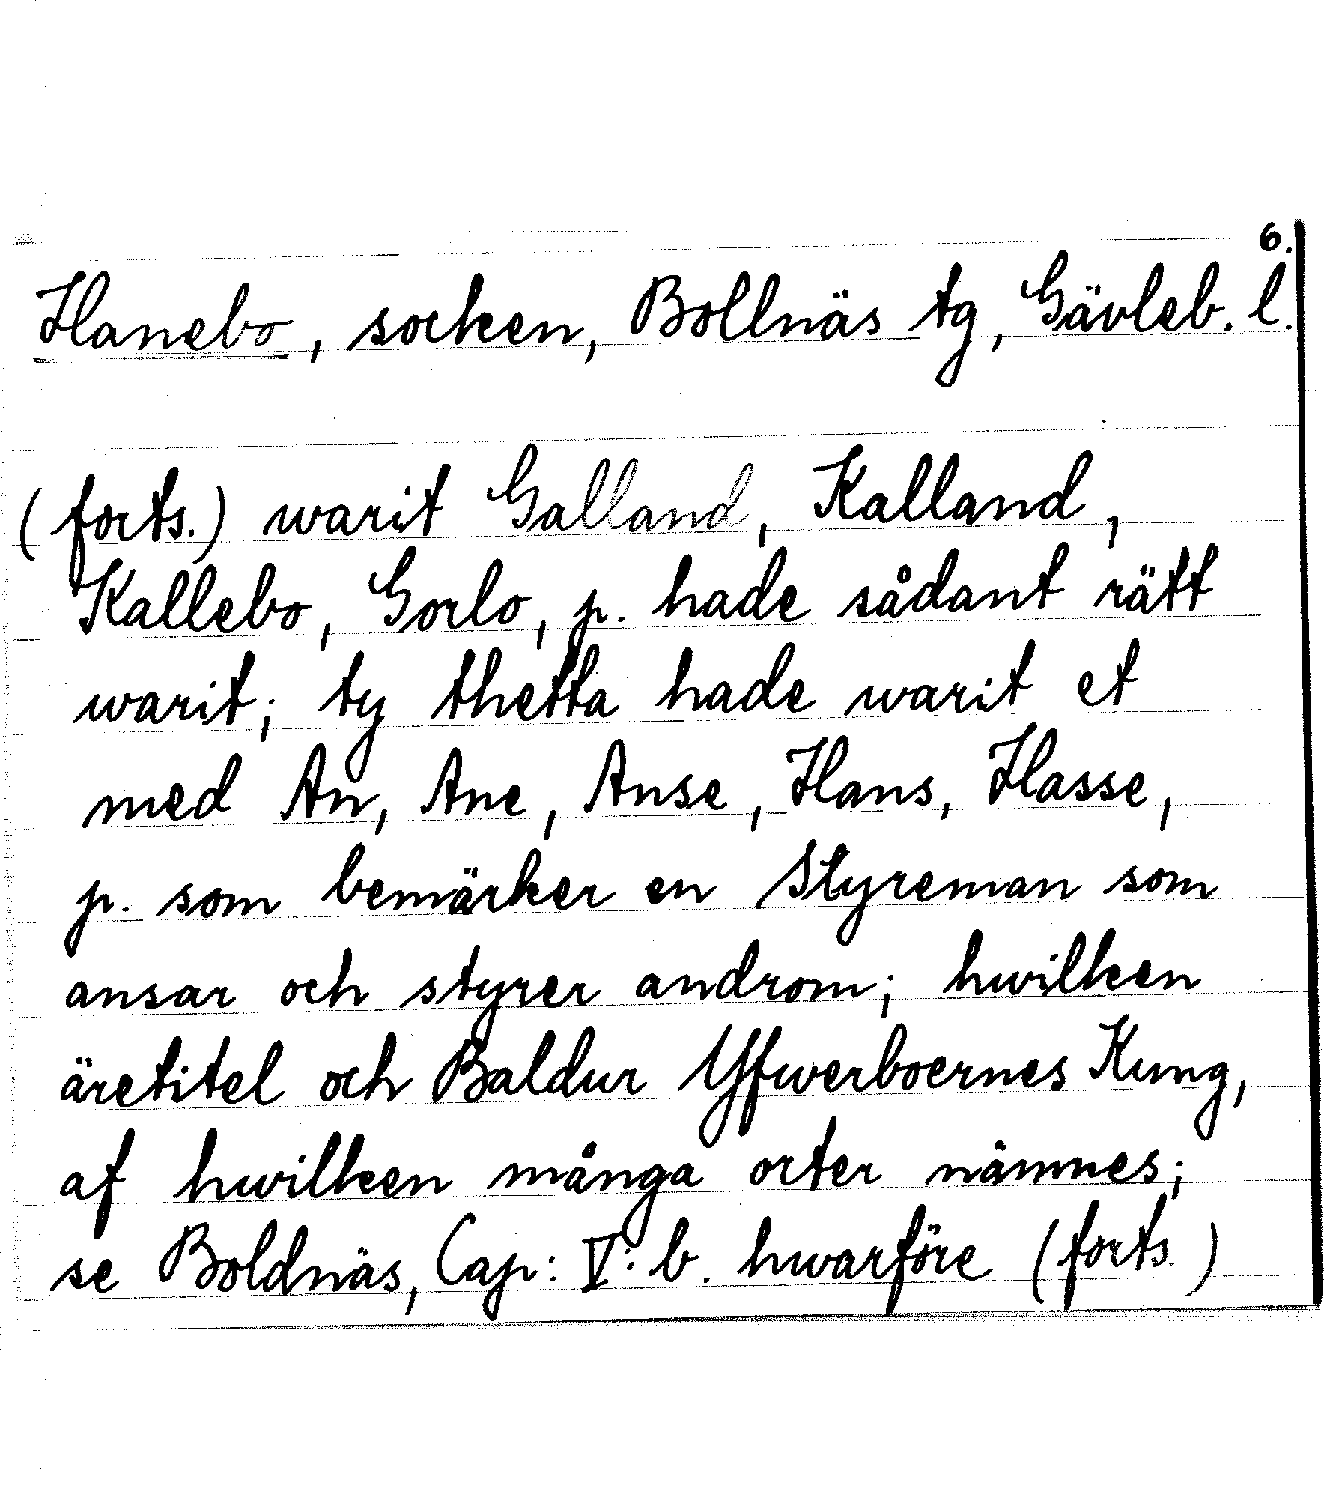 6.
Hanebo, socken, Bollnäs tg, Gävleb. l.
(forts.) warit Galland, Kalland,
Kallebo, Gorlo, p. hade sådant rätt
warit; ty thetta hade warit et
med An, Ane, Anse, Hans, Hasse,
p. som bemärker en Styreman som
ansar och styrer androm; hwilken
äretitel och Baldur Yfwerboernes Kung,
af hwilken många orter nämnes;
se Boldnäs, Cap: V: b. hwarföre (forts.)